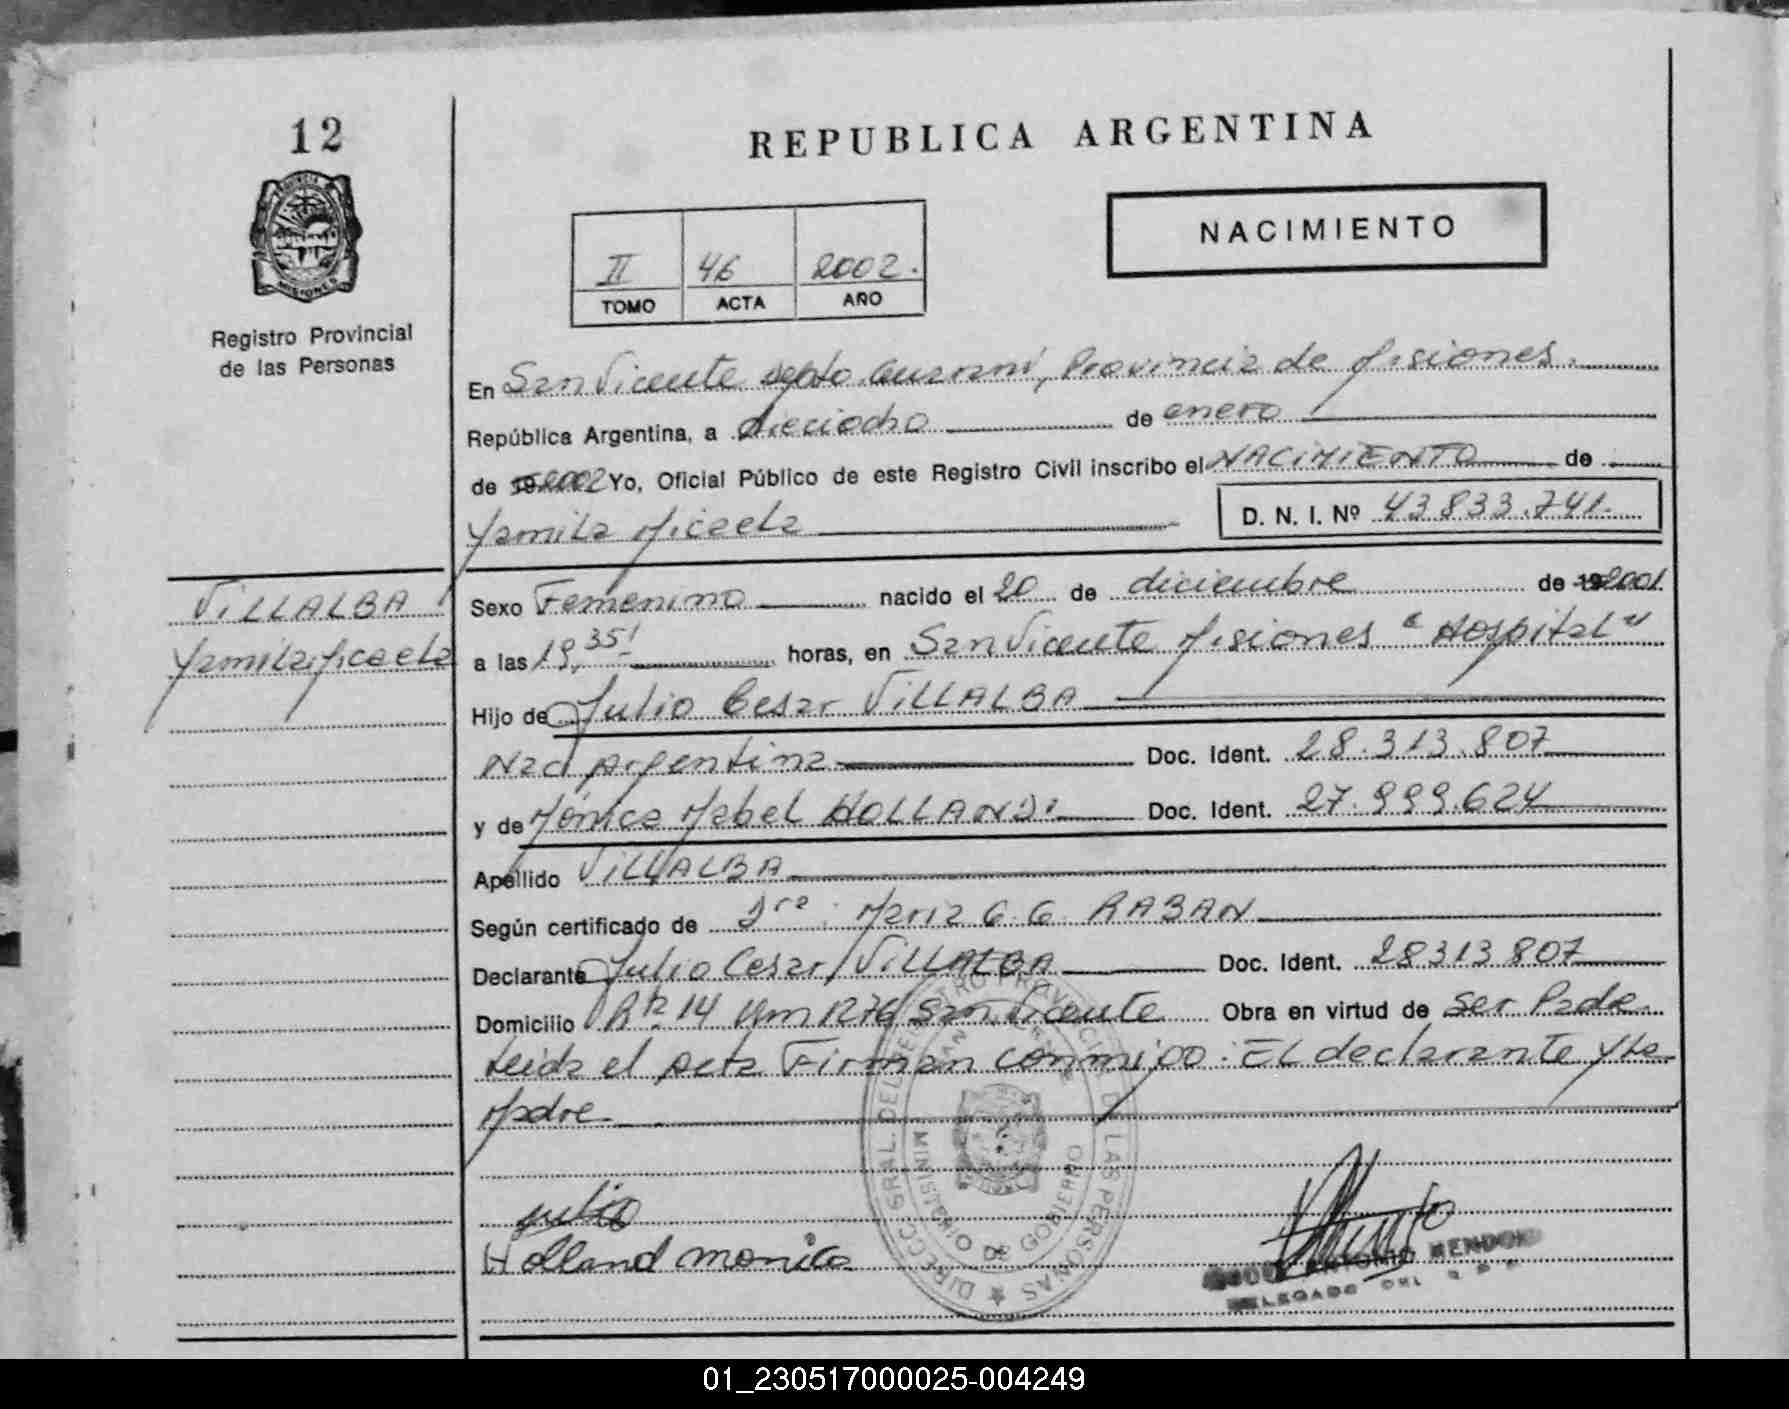 12
REPUBLICA ARGENTINA
PROVINCIA DE
MISIONES
Registro Provincial
de las Personas
NACIMIENTO
II 46 2002.
TOMO ACTA AÑO
En San Vicente Depto. Guaraní, Provincia de Misiones.
República Argentina, a dieciocho de enero
de 19 2002 Yo, Oficial Público de este Registro Civil inscribo el NACIMIENTO de
Yamila Micaela D. N. I. Nº 43.833.741.
VILLALBA
Yamila Micaela
Sexo Femenino nacido el 20 de diciembre de 19 2001.
a las 19,35' horas, en San Vicente Misiones "Hospital"
Hijo de Julio Cesar VILLALBA
Nac Argentina Doc. Ident. 28.313.807
y de Mónica Mabel HOLLAND. Doc. Ident. 27.999.624
Apellido VILLALBA
Según certificado de Dra. Maria G. G. RABAN
Declarante Julio Cesar VILLALBA Doc. Ident. 28313807
Domicilio R. 14 Km 1276 San Vicente Obra en virtud de ser Padre
Leida el Acta Firman conmigo: El declarante y la
Madre
julio
Holland monica
DIRECC. GRAL. DEL REGISTRO PROVINCIAL DE LAS PERSONAS
MINISTERIO DE GOBIERNO
ANTONIO MENDOZA
DELEGADO DEL R. P. P.
01_230517000025-004249